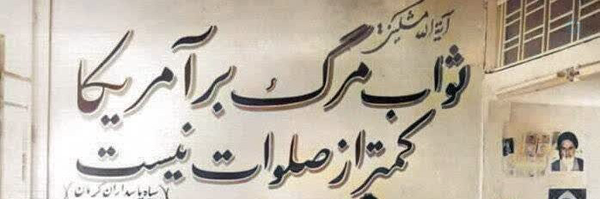 آیة الله مشکینی
ثواب مرگ بر آمریکا
کمتر از صلوات نیست
(سپاه پاسداران کرون)